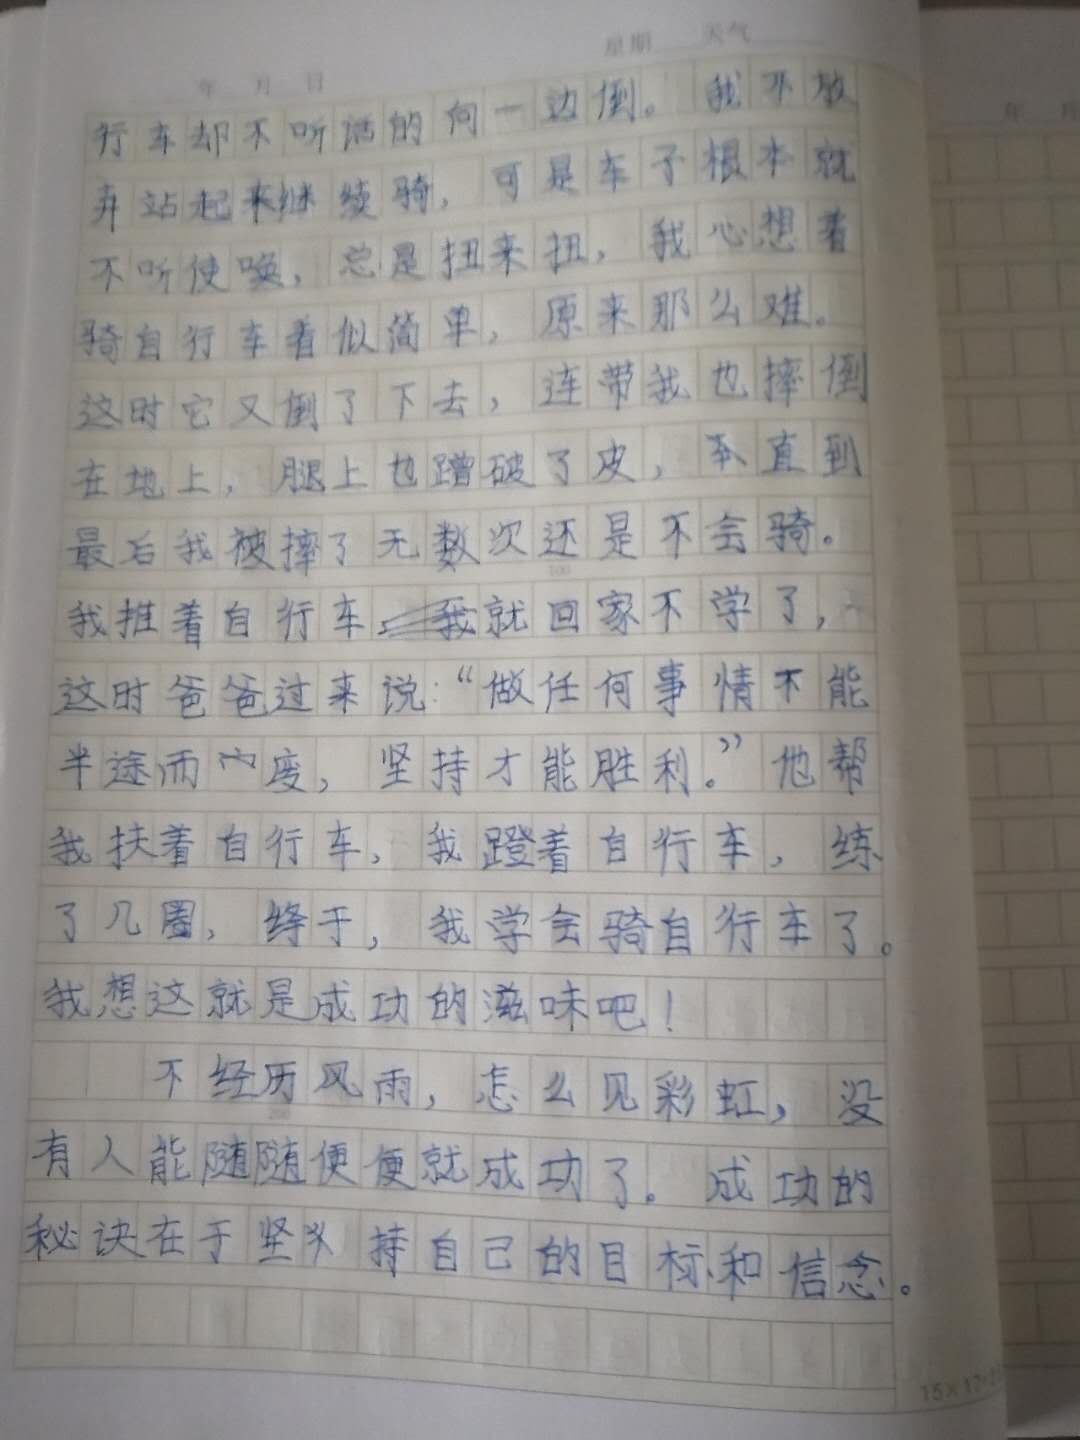 年 月 日 星期 天气
行车却不听话的向一边倒。我不放
弃站起来继续骑，可是车子根本就
不听使唤，总是扭来扭，我心想着
骑自行车着似简单，原来那么难。
这时它又倒了下去，连带我也摔倒
在地上，腿上也蹭破了皮，直到
最后我被摔了无数次还是不会骑。
我推着自行车就回家不学了，
这时爸爸过来说：“做任何事情不能
半途而废，坚持才能胜利。”他帮
我扶着自行车，我蹬着自行车，练
了几圈，终于，我学会骑自行车了。
我想这就是成功的滋味吧！
不经历风雨，怎么见彩虹，没
有人能随随便便就成功了。成功的
秘诀在于坚持自己的目标和信念。
年 月